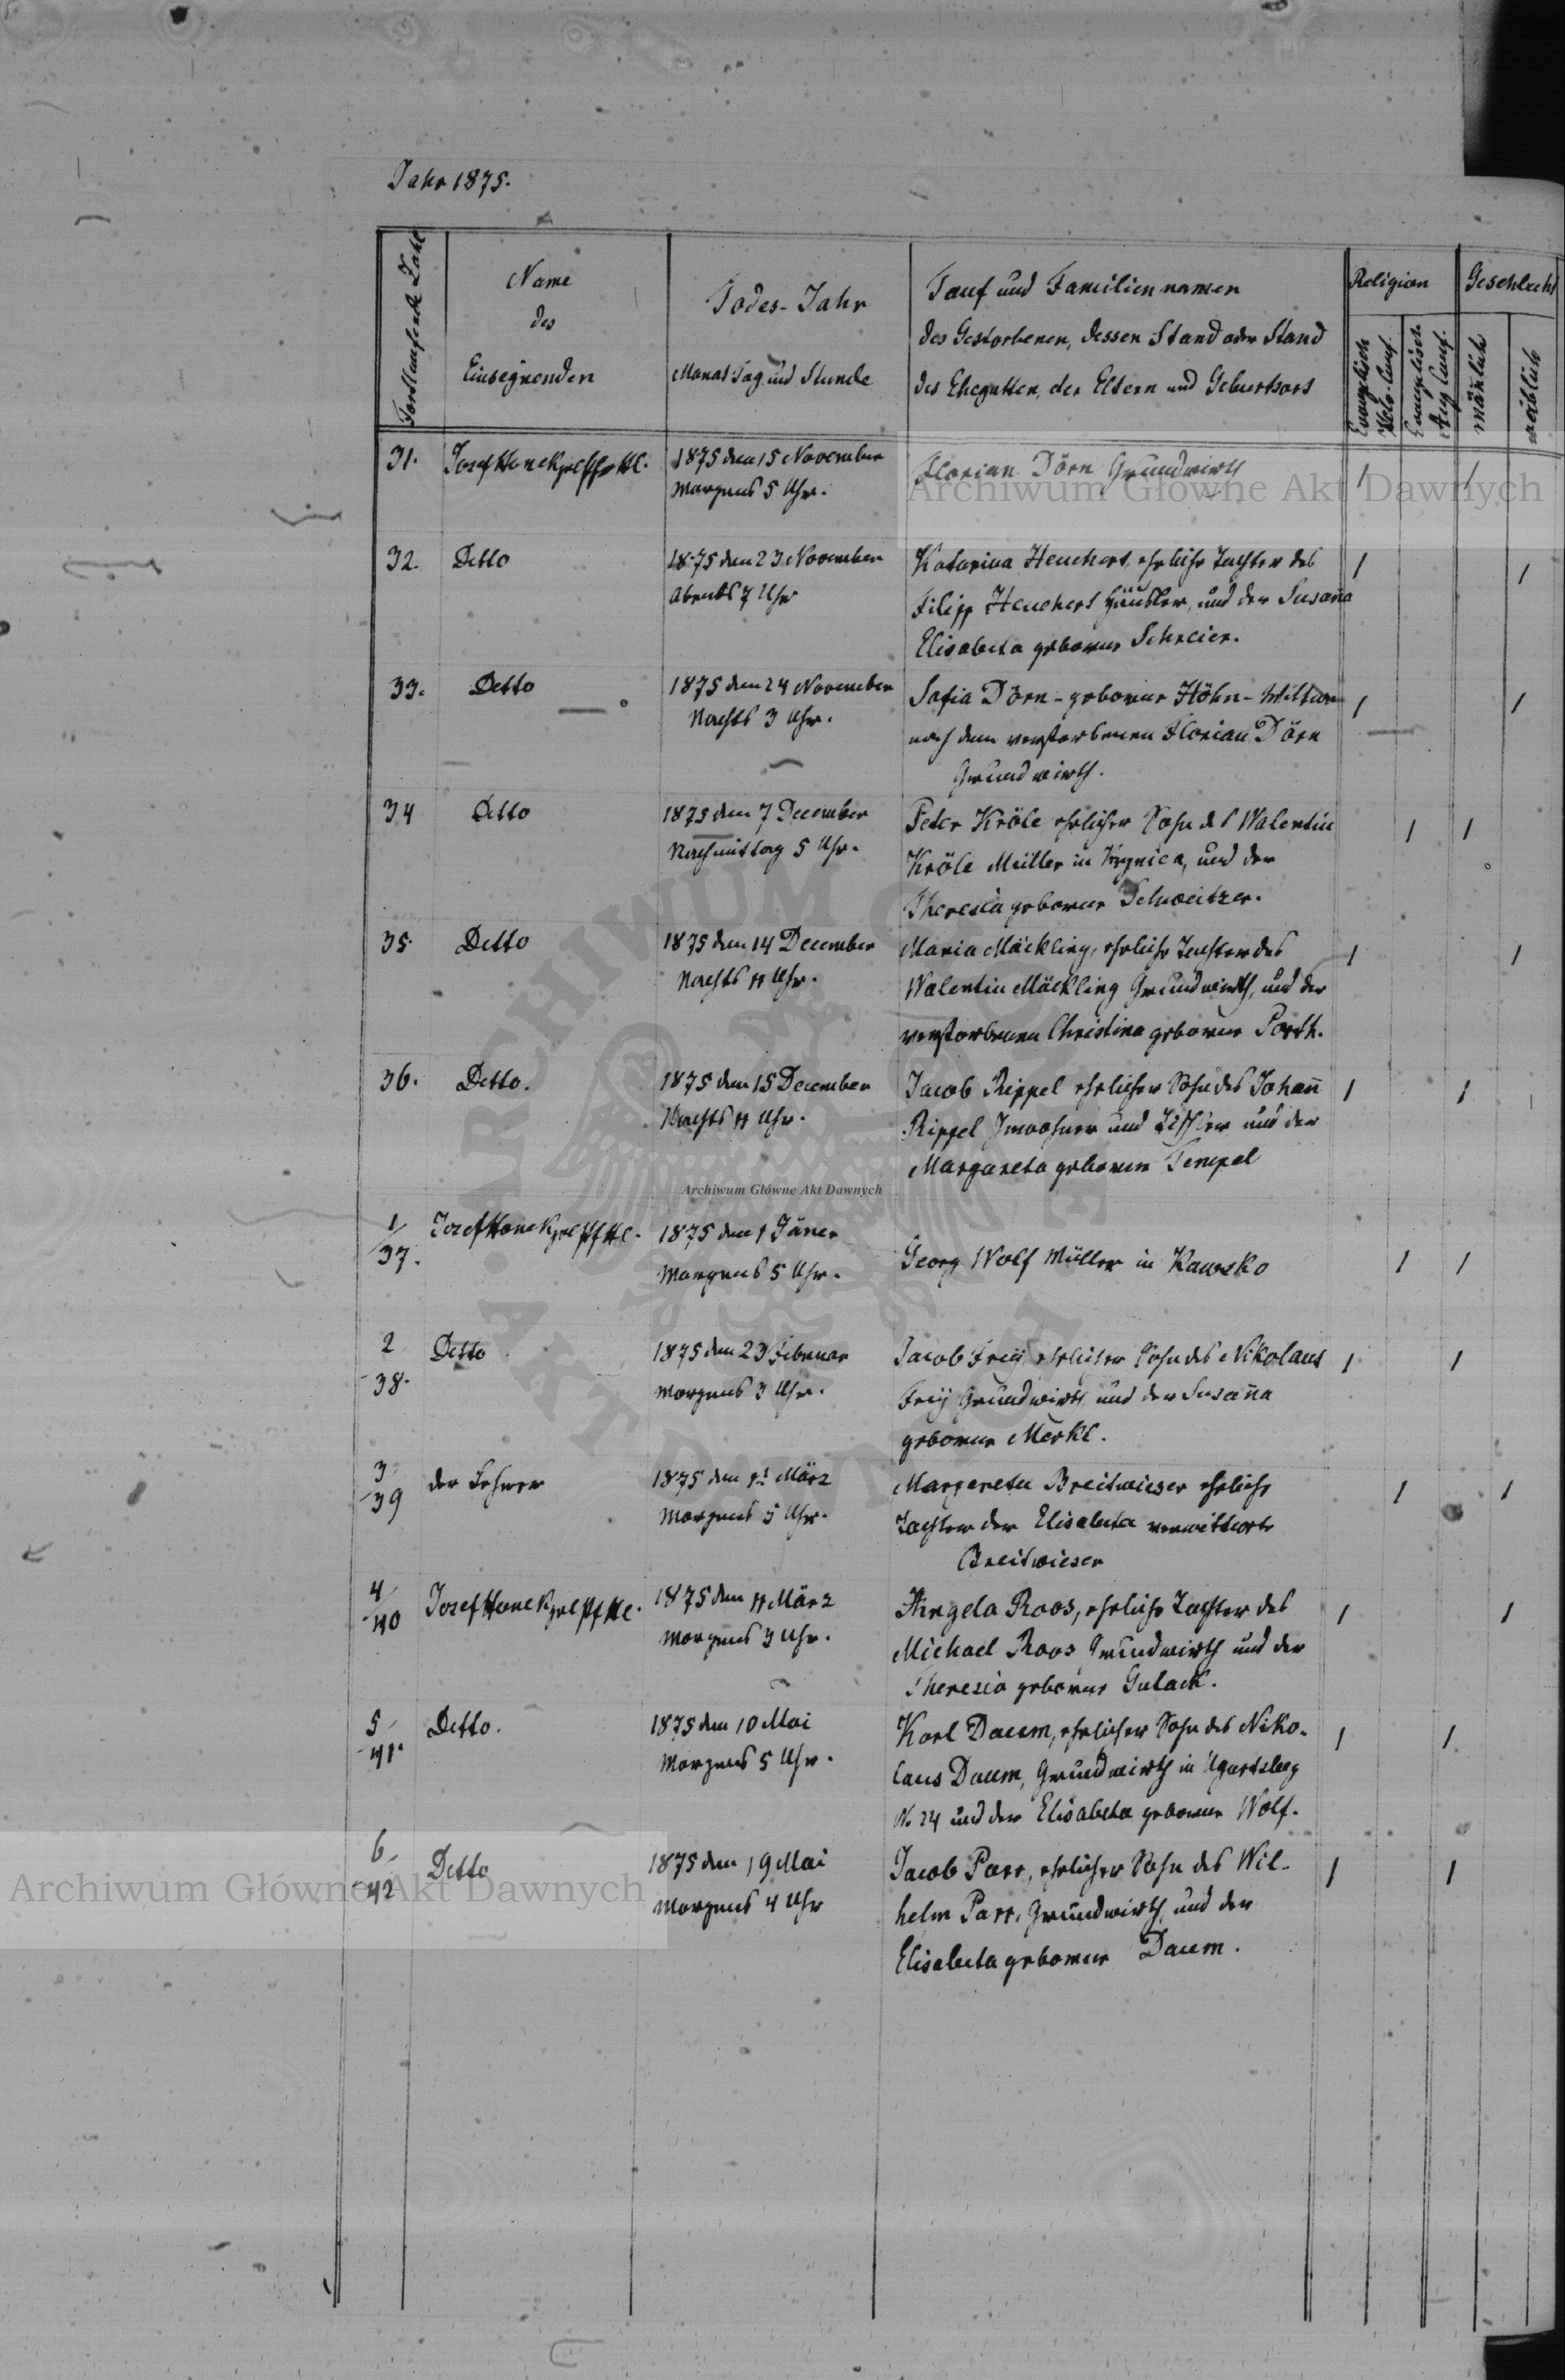 Jahr 1875.
Fortlaufende Zahl
Name
des
Einsegnenden
Todes-Jahr
Monat Tag und Stunde
Tauf und Familiennamen
des Gestorbenen, dessen Stand oder Stand
des Ehegatten, der Eltern und Geburtsort
Religion
Evangelisch
Helv. Conf.
Evangelisch
Aug Conf.
Geschlecht
mänlich
weiblich
31. Josef
1875 den 15 November
Morgens 5 Uhr.
Florian Dörn Grundwirth
1 1
32. Detto
1875 den 23 November
Abends 7 Uhr
Katarina Heuchert eheliche Tochter des
Filipp Heuchert Häusler, und der Susana
Elisabeta geborene Schreier.
1 1
33. Detto
1875 den 24 November
Nachts 3 Uhr.
Sofia Dörn - geborene Höhn - Witwe
nach dem verstorbenen Florian Dörn
Grundwirth.
1 1
34 Detto
1875 den 7 December
Nachmittag 5 Uhr.
Peter Kröle ehelicher Sohn des Walentin
Kröle Müller in und der
Theresia geborene Schweitzer.
1 1
35. Detto
1875 den 14 December
Nachts 11 Uhr.
Maria Mäckling, eheliche Tochter des
Walentin Mäckling Grundwirth, und der
verstorbenen Christina geborene Porth.
1 1
36. Detto.
1875 den 15 December
Nachts 11 Uhr.
Jacob Rippel ehelicher Sohn des Johan
Rippel Inwohner und Tischler und der
Margareta geborene Tempel
1 1
1/37. Josef
1875 den 1 Jäner
Morgens 5 Uhr.
Georg Wolf Müller in Kawsko
1 1
2/38. Detto
1875 den 23 Februar
Morgens 3 Uhr.
Jacob Freÿ ehelicher Sohn des Nikolaus
Freÿ Grundwirth und der Susana
geborene Merkl.
1 1
3/39 der Lehrer
1875 den März
Morgens 5 Uhr.
Margereta Breitwieser eheliche
Tochter der Elisabeta verwittwete
Breitwieser
1 1
4/40 Josef
1875 den 11 März
Morgens 3 Uhr.
Angela Roos, eheliche Tochter des
Michael Roos Grundwirth und der
Theresia geborene Gulack.
1 1
5/41. Detto.
1875 den 10 Mai
Morgens 5 Uhr.
Karl Daum, ehelicher Sohn des Niko-
laus Daum, Grundwirth in Ugartsberg
N. 24 und der Elisabeta geborene Wolf.
1 1
6/42 Detto
1875 den 19 Mai
Morgens 4 Uhr
Jacob Parr, ehelicher Sohn des Wil-
helm Parr, Grundwirth, und der
Elisabeta geborene Daum.
1 1
Archiwum Główne Akt Dawnych
Archiwum Główne Akt Dawnych
Archiwum Główne Akt Dawnych